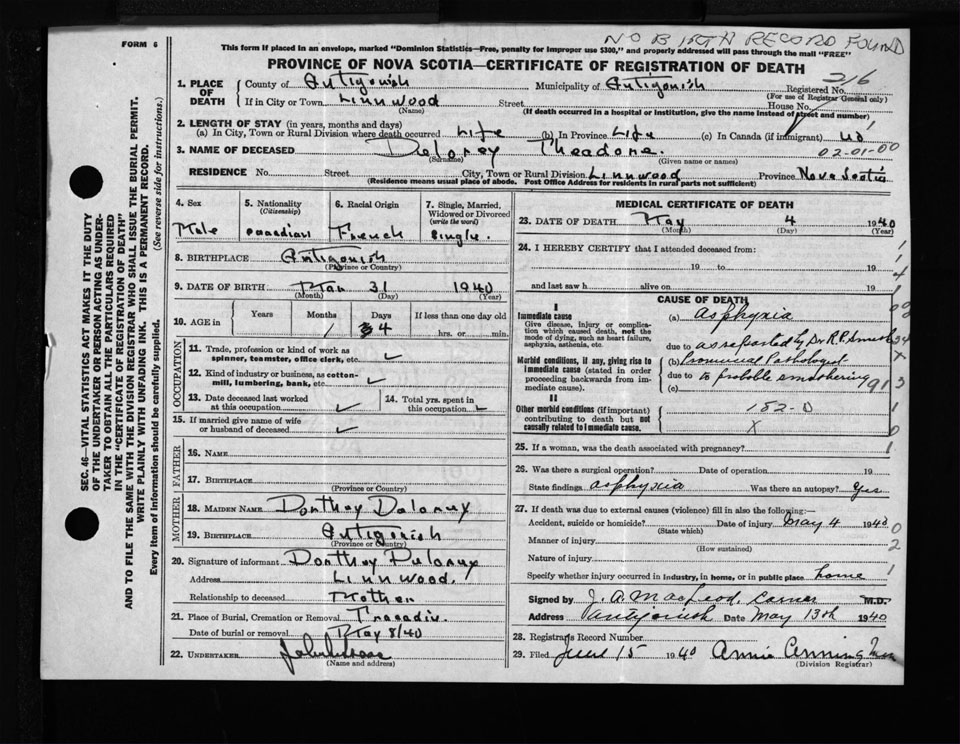 NO BIRTH RECORD FOUND
FORM 6
This form if placed in an envelope, marked "Dominion Statistics—Free, penalty for improper use $300," and properly addressed will pass through the mail "FREE"
PROVINCE OF NOVA SCOTIA—CERTIFICATE OF REGISTRATION OF DEATH
216
1. PLACE OF DEATH
County of Antigonish Municipality of Antigonish Registered No.
(For use of Registrar General only)
If in City or Town Linnwood Street House No.
(Name) (If death occurred in a hospital or institution, give the name instead of street and number)
2. LENGTH OF STAY (in years, months and days)
(a) In City, Town or Rural Division where death occurred Life (b) In Province Life (c) In Canada (if immigrant)
3. NAME OF DECEASED Delorey Theadore.
(Surname) (Given name or names)
02-01-00
RESIDENCE No. Street City, Town or Rural Division Linnwood Province Nova Scotia
(Residence means usual place of abode. Post Office Address for residents in rural parts not sufficient)
SEC. 46—VITAL STATISTICS ACT MAKES IT THE DUTY
OF THE UNDERTAKER OR PERSON ACTING AS UNDER-
TAKER TO OBTAIN ALL THE PARTICULARS REQUIRED
IN THE "CERTIFICATE OF REGISTRATION OF DEATH"
AND TO FILE THE SAME WITH THE DIVISION REGISTRAR WHO SHALL ISSUE THE BURIAL PERMIT.
WRITE PLAINLY WITH UNFADING INK. THIS IS A PERMANENT RECORD.
Every item of information should be carefully supplied. (See reverse side for instructions.)
4. Sex 5. Nationality (Citizenship) 6. Racial Origin 7. Single, Married, Widowed or Divorced (write the word)
Male Canadian French Single.
8. BIRTHPLACE Antigonish
(Province or Country)
9. DATE OF BIRTH Mar 31 1940
(Month) (Day) (Year)
10. AGE in Years Months Days If less than one day old
1 4 hrs. or min.
OCCUPATION
11. Trade, profession or kind of work as
spinner, teamster, office clerk, etc. ✓
12. Kind of industry or business, as cotton-
mill, lumbering, bank, etc. ✓
13. Date deceased last worked
at this occupation ✓
14. Total yrs. spent in
this occupation ✓
15. If married give name of wife
or husband of deceased ✓
FATHER
16. NAME
17. BIRTHPLACE
(Province or Country)
MOTHER
18. MAIDEN NAME Dorthey Delorey
19. BIRTHPLACE Antigonish
(Province or Country)
20. Signature of informant Dorthey Delorey
Address Linnwood.
Relationship to deceased Mother
21. Place of Burial, Cremation or Removal Tracadie
Date of burial or removal May 8/40
22. UNDERTAKER
(Name and address)
MEDICAL CERTIFICATE OF DEATH
23. DATE OF DEATH May 4 1940
(Month) (Day) (Year)
24. I HEREBY CERTIFY that I attended deceased from:
19 to 19
and last saw h alive on 19
CAUSE OF DEATH
I
Immediate cause
Give disease, injury or complica-
tion which caused death, not the
mode of dying, such as heart failure,
asphyxia, asthenia, etc.
(a) Asphyxia
due to as reported by Dr R.P. Smith
Morbid conditions, if any, giving rise to
immediate cause (stated in order
proceeding backwards from im-
mediate cause).
(b) Provincial Pathologist
due to to probable smothering
(c)
913
II
Other morbid conditions (if important)
contributing to death but not
causally related to immediate cause.
182-0
X
25. If a woman, was the death associated with pregnancy?
26. Was there a surgical operation? Date of operation 19
State findings asphyxia Was there an autopsy? Yes
27. If death was due to external causes (violence) fill in also the following:
Accident, suicide or homicide? Date of injury May 4 1940
(State which)
Manner of injury
(How sustained)
Nature of injury
Specify whether injury occurred in industry, in home, or in public place home
Signed by J. A. MacLeod, Coroner M.D.
Address Antigonish Date May 13th 1940
28. Registrars Record Number
29. Filed June 15 1940 Annie
(Division Registrar)